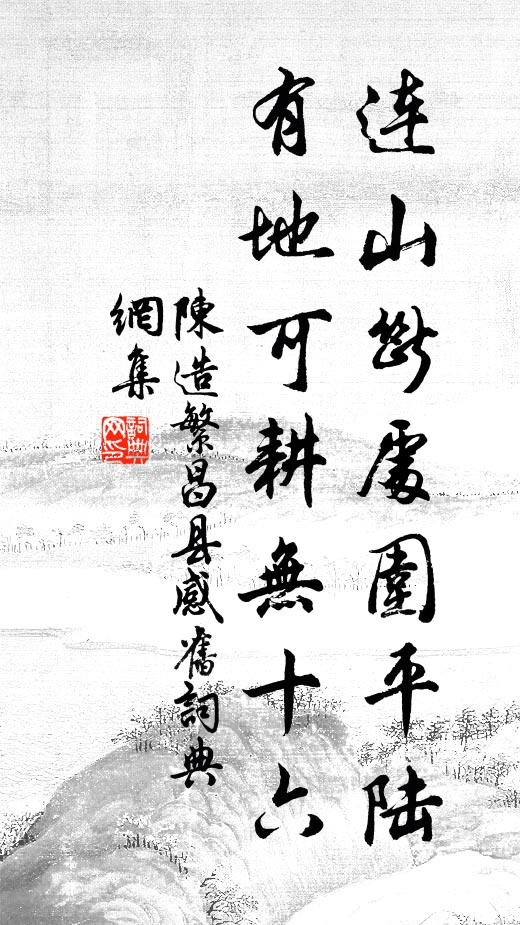 连山断处围平陆
有地可耕無十六
陳造繁昌县感舊詞典
網集
詞典
网印